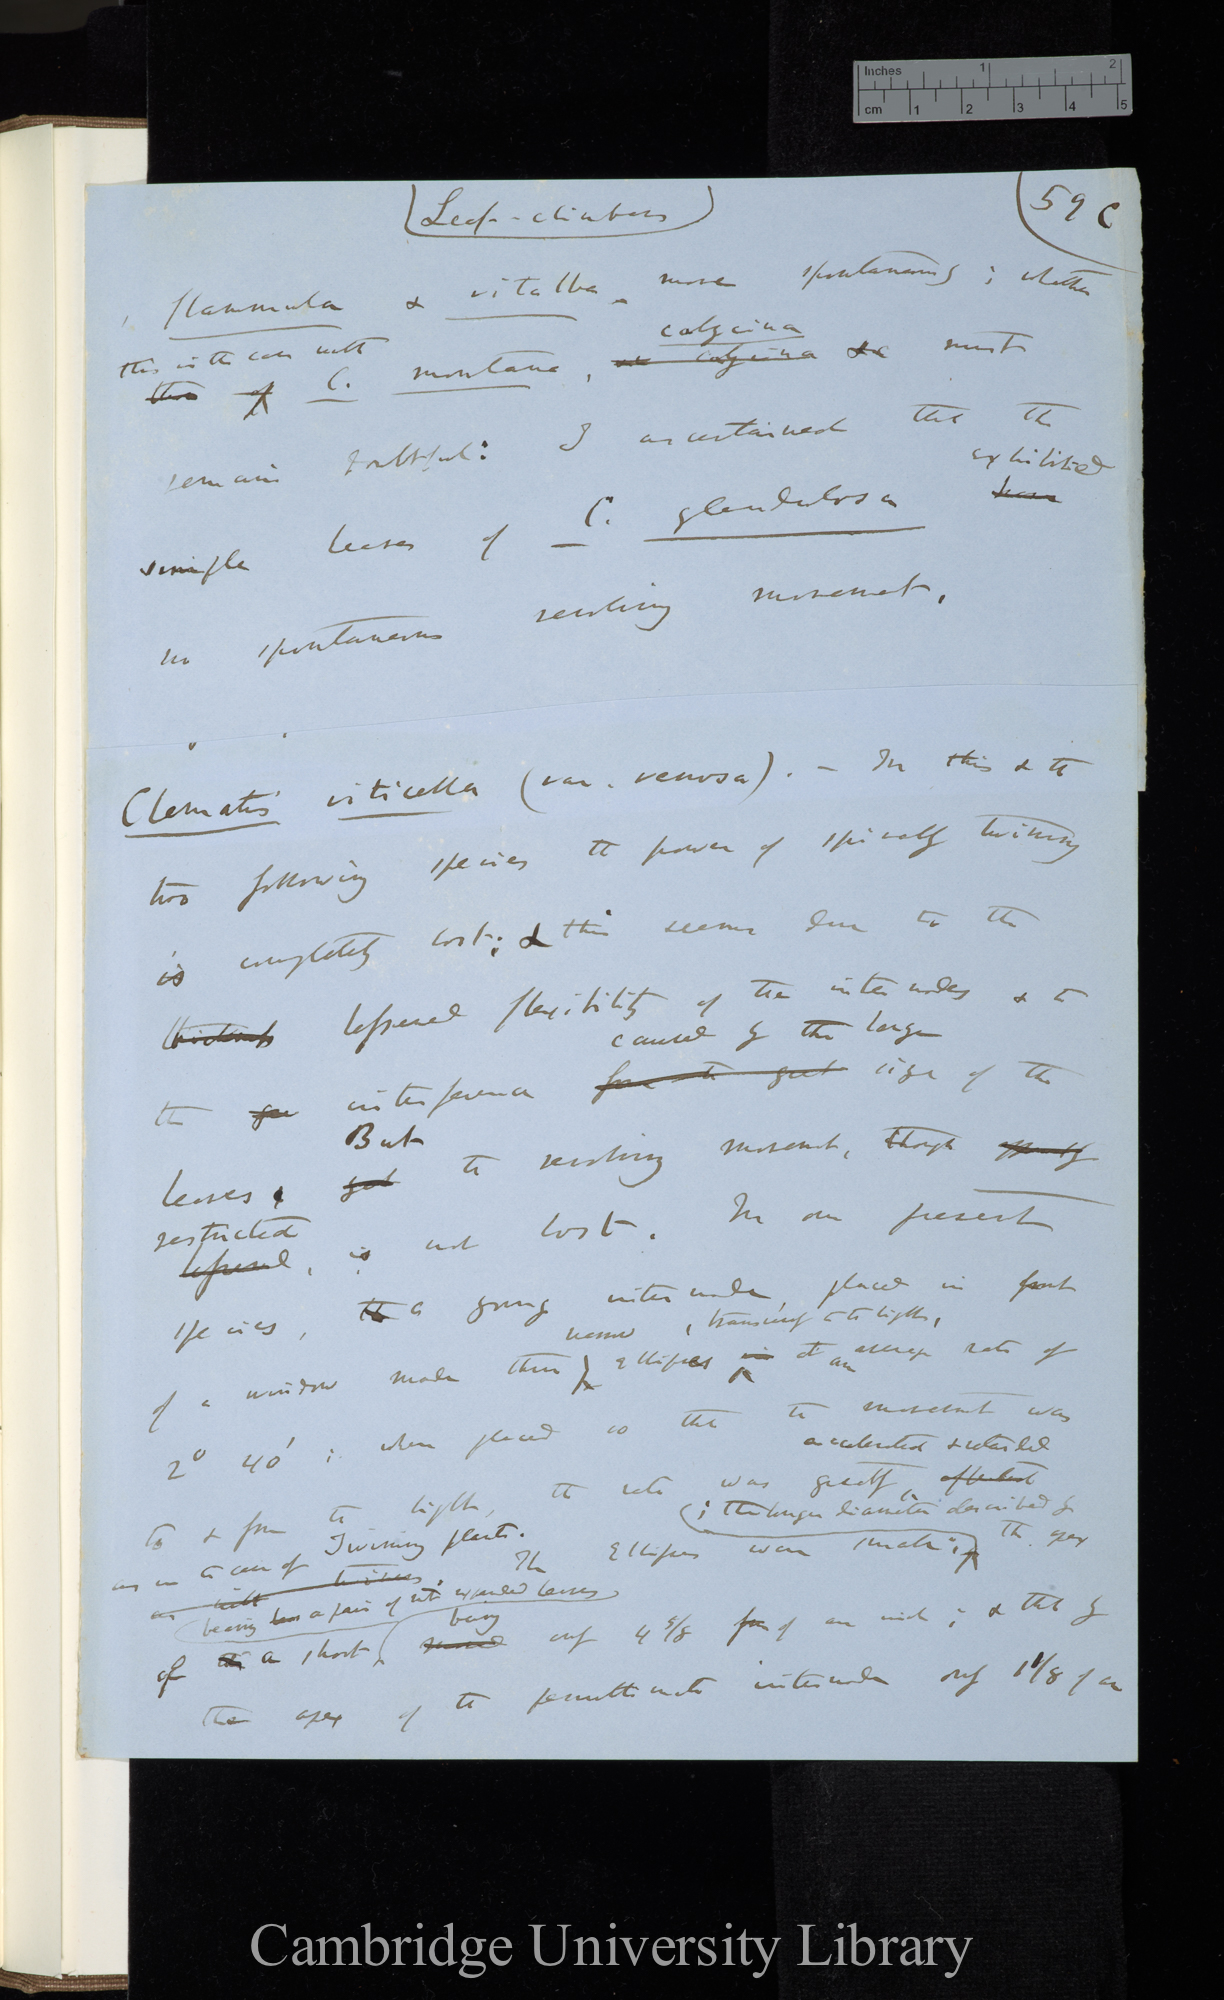 Inches 1 2
cm 1 2 3 4 5
Leaf-climbers
59 C
, flammula & vitalba move spontaneously ; whether
this is the case with
calycina
those of C. montana, calycina &c must
remain doubtful: I ascertained that the
exhibited
simple leaves of C. glandulosa have
no spontaneous revolving movement.
Clematis viticella (var. venosa). — In this & the
two following species the power of spirally twining
is completely lost; & this seems due to the
thickness lessened flexibility of the internodes & to
caused by the large
the interference from the great size of the
But
leaves. yet the revolving movement, though
restricted
lessened, is not lost. In our present
species, the a young internode, placed in front
narrow , transversely to the light,
of a window made three ellipses in at an average rate of
2° 40' ; when placed so that the movement was
accelerated & retarded
to & from the light, the rate was greatly affected
; the longer diameter described by
as in the case of Twining plants.
as with twiners. The ellipses were small ; The apex
bearing a pair of not expanded leaves
being
of the a short, only 4 5/8 of an inch ; & that by
the apex of the penultimate internode only 1 1/8 of an
Cambridge University Library